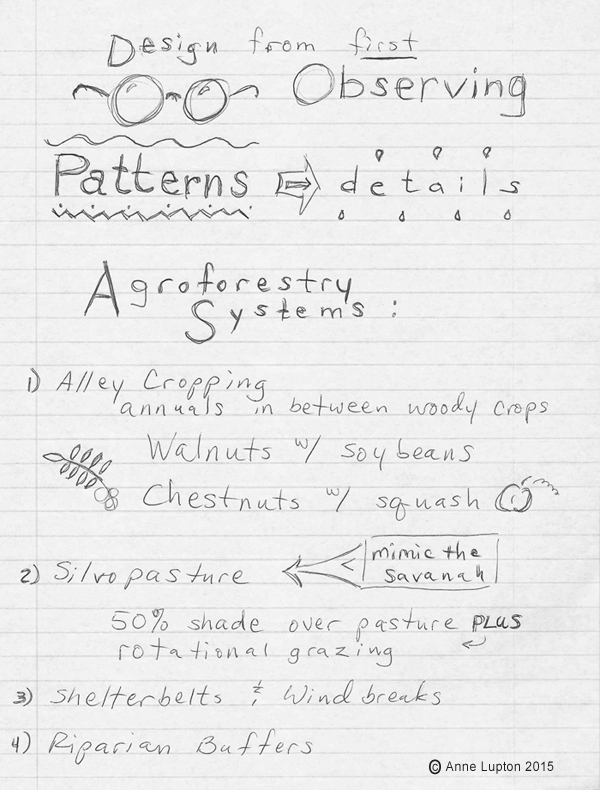 Design from first
Observing
Patterns ⇒ details
Agroforestry
Systems :
1) Alley Cropping
annuals in between woody crops
Walnuts w/ soybeans
Chestnuts w/ squash
2) Silvopasture
mimic the
savanah
50% shade over pasture PLUS
rotational grazing
3) Shelterbelts & Windbreaks
4) Riparian Buffers
© Anne Lupton 2015